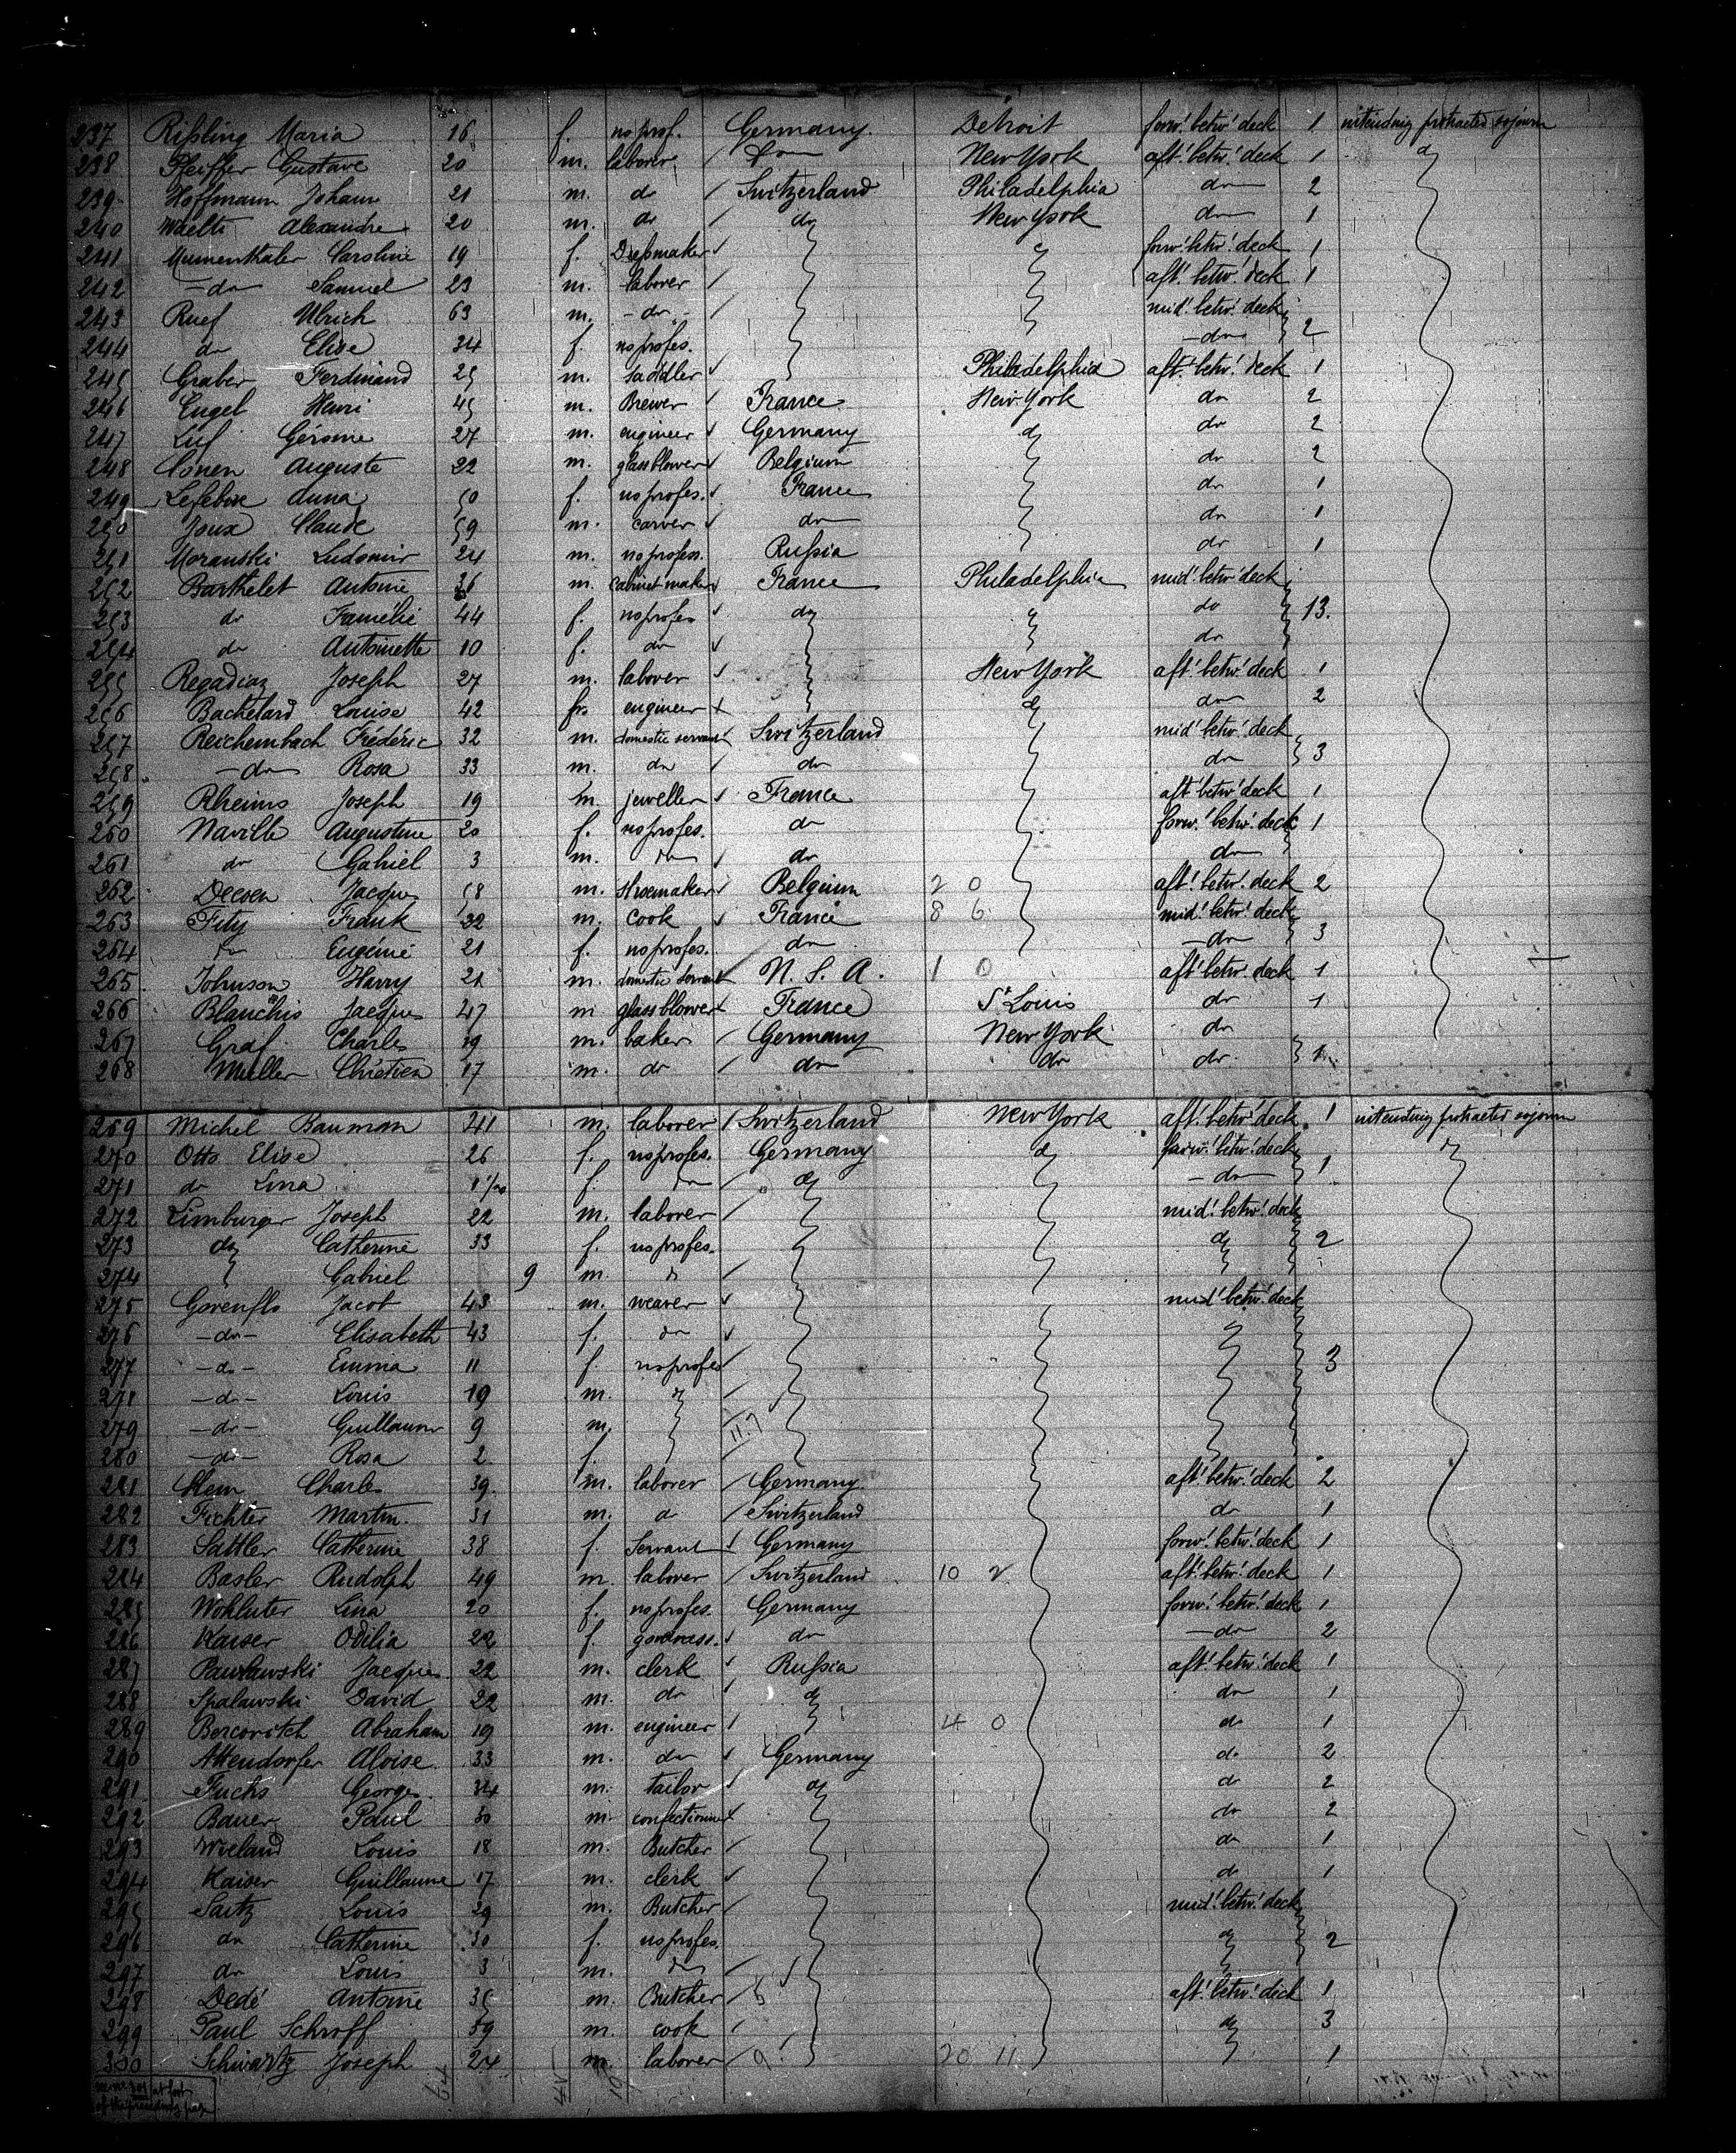 237 Rißling Maria 16 f. no prof. Germany Detroit forw! betw! deck 1 intending protracted sojourn
238 Pfeiffer Gustave 20 m. laborer / do New York aft! betw! deck 1 do
239 Hoffmann Johann 21 m. do / Switzerland Philadelphia do 2
240 Waelti Alexandre 20 m. do / do New York do 1
241 Mumenthaler Caroline 19 f. Dreßmaker forw! betw! deck 1
242 - do Samuel 23 m. laborer / aft! betw! deck 1
243 Ruef Ulrich 63 m. - do - / mid! betw! deck
244 do Elise 34 f. no profes. - do 2
245 Graber Ferdinand 25 m. saddler Philadelphia aft! betw! deck 1
246 Engel Henri 45 m. Brewer France New York do 2
247 Luf Gérome 27 m. engineer Germany do do 2
248 Conen Auguste 22 m. glassblower Belgium do 2
249 Lefebvre Anna 50 f. no profes. France do 1
250 Joux Claude 59 m. carver do do 1
251 Moranski Ludomir 24 m. no profess. Rußia do 1
252 Barthelet Antoine 36 m. cabinet maker France Philadelphia mid! betw! deck
253 do Famélie 44 f. no profes do do 13.
254 do Antoinette 10 f. do do
255 Regadiaz Joseph 27 m. laborer New York aft! betw! deck 1
256 Bachelard Louise 42 engineer do do 2
257 Reichembach Fréderic 32 m. domestic servant Switzerland mid! betw! deck
258 - do Rosa 33 m. do / do do 3
259 Rheims Joseph 19 m. jeweller France aft! betw! deck 1
260 Naville Augustine 20 f. no profes. do forw! betw! deck 1
261 do Gabriel 3 m. do do do
262 Decoen Jacques 58 m. shoemaker Belgium 2 0 aft! betw! deck 2
263 Fity Frank 32 m. cook France 8 6 mid! betw! deck
264 do Eugénie 21 f. no profes. do - do 3
265 Johnson Harry 21 m. domestic servant N. S. A. 1 0 aft! betw! deck 1
266 Blanchis Jacques 47 m glassblower France St Louis do 1
267 Graf Charles 19 m. baker / Germany New York do
268 Muller Chrétien 17 m. do / do do do 1
269 Michel Bauman 41 m. laborer / Switzerland New York aft! betw! deck 1 intending protracted sojourn
270 Otto Elise 26 f. no profes. Germany do forw! betw! deck do
271 do Lina 1 f. do / do - do 1
272 Limburger Joseph 22 m. laborer / mid! betw! deck
273 do Catherine 33 f. no profes. do 2
274 Gabriel 9 m. do /
275 Gorenflo Jacob 43 m. weaver mid! betw! deck
276 - do - Elisabeth 43 f. do
277 - do - Emma 11 f no profes 3
271 - do - Louis 19 m. do /
279 - do - Guillaume 9 m. 11.7
280 - do - Rosa 2 f.
281 Charles 39. m. laborer / Germany aft! betw! deck 2
282 Fichter Martin. 31 m. do / Switzerland do 1
283 Sattler Catherine 38 f. Servant Germany forw! betw! deck 1
284 Basler Rudolph 49 m. laborer / Switzerland 10 2 aft! betw! deck 1
285 Wohluter Lina 20 f. no profes. Germany forw! betw! deck 1
286 Kaiser Odilia 22 f. do - do 2
287 Pawlawski Jacques 22 m. clerk Rußia aft! betw! deck 1
288 Spalawski David 22 m. do do do 1
289 Bercovitch Abraham 19 m. engineer 4 0 do 1
290 Attendorfer Aloise. 33 m. do Germany do 2
291 Fuchs Georges 34 m. tailor do do 2
292 Bauer Paul 30 m. confectioner do 2
293 Wieland Louis 18 m. Butcher / do 1
294 Kaiser Guillaume 17 m. clerk do 1
295 Saitz Louis 29 m. Butcher / mid! betw! deck
296 do Catherine 30 f. no profes. do 2
297 do Louis 3 m. do /
298 Dedé Antoine 35 m. Butcher / aft! betw! deck 1
299 Paul Schroff 59 m. cook / do 3
300 Schwartz Joseph 24 m. laborer / 9 20 11 1
at foot
of the preceding page